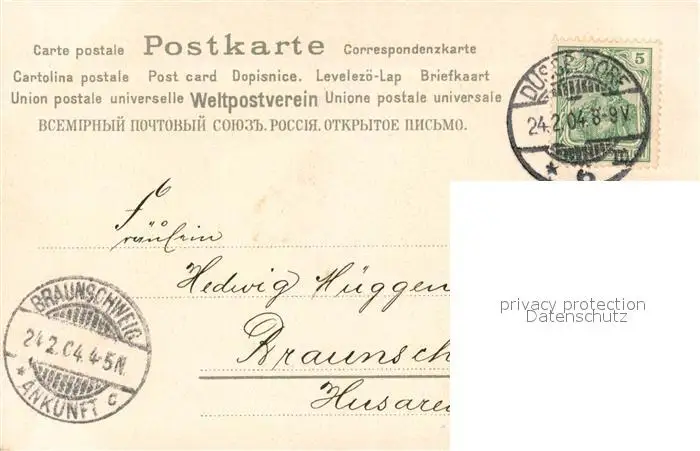 Carte postale Postkarte Correspondenzkarte
Cartolina postale Post card Dopisnice. Levelező-Lap Briefkaart
Union postale universelle Weltpostverein Unione postale universale
ВСЕМІРНЫЙ ПОЧТОВЫЙ СОЮЗЪ. РОССІЯ. ОТКРЫТОЕ ПИСЬМО.
5
DÜSSELDORF
24.2.04.8-9V
* 6
Fräulein
Hedwig Müggen
Braunsch
Husare
BRAUNSCHWEIG
24.2.04.4-5N.
* ANKUNFT c
privacy protection
Datenschutz